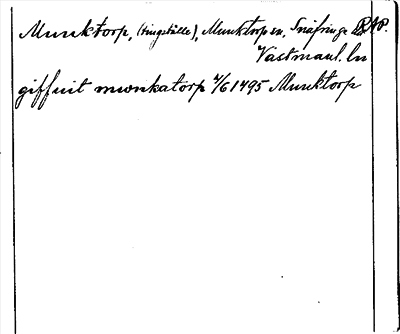 Munktorp, (tingställe), Munktorp sn, Snäfringe
Västmanl. ln
giffuit mwnkatorp 4/6 1495 Munktorp